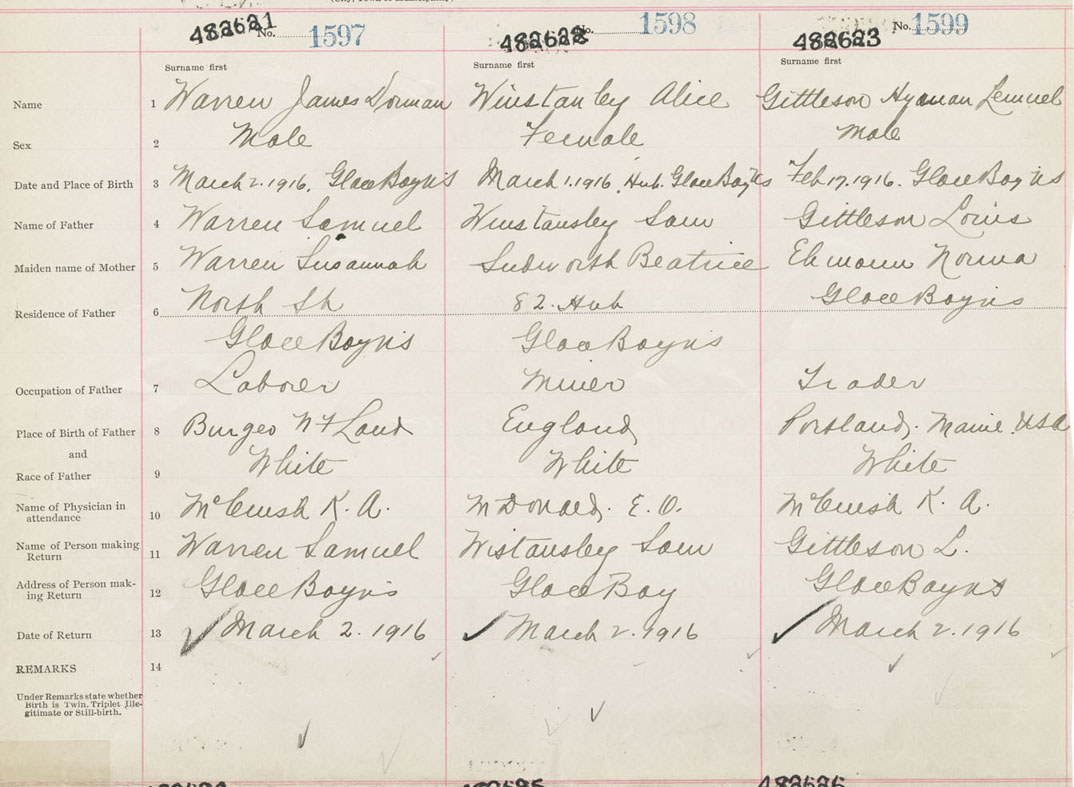 482621 No. 1597 482622 No. 1598 482623 No. 1599
Surname first Surname first Surname first
Name 1 Warren James Dorman Winstanley Alice Gittleson Hyman Lemuel
Sex 2 Male Female Male
Date and Place of Birth 3 March 2. 1916, Glace Bay NS March 1. 1916, Hub. Glace Bay NS Feb. 17. 1916. Glace Bay NS
Name of Father 4 Warren Samuel Winstansley Sam Gittleson Louis
Maiden name of Mother 5 Warren Susannah Sudworth Beatrice Ehmann Norma
Residence of Father 6 North St 82. Hub Glace Bay NS
Glace Bay NS Glace Bay NS
Occupation of Father 7 Laborer Miner Trader
Place of Birth of Father 8 Burgeo Nf Land England Portland, Maine. USA
and
Race of Father 9 White White White
Name of Physician in attendance 10 McCuish K. A. McDonald, E. O. McCuish K. A.
Name of Person making Return 11 Warren Samuel Wistansley Sam Gittleson L.
Address of Person making Return 12 Glace Bay NS Glace Bay Glace Bay NS
Date of Return 13 March 2. 1916 March 2. 1916 March 2. 1916
REMARKS 14
Under Remarks state whether
Birth is Twin, Triplet, Ille-
gitimate or Still-birth.